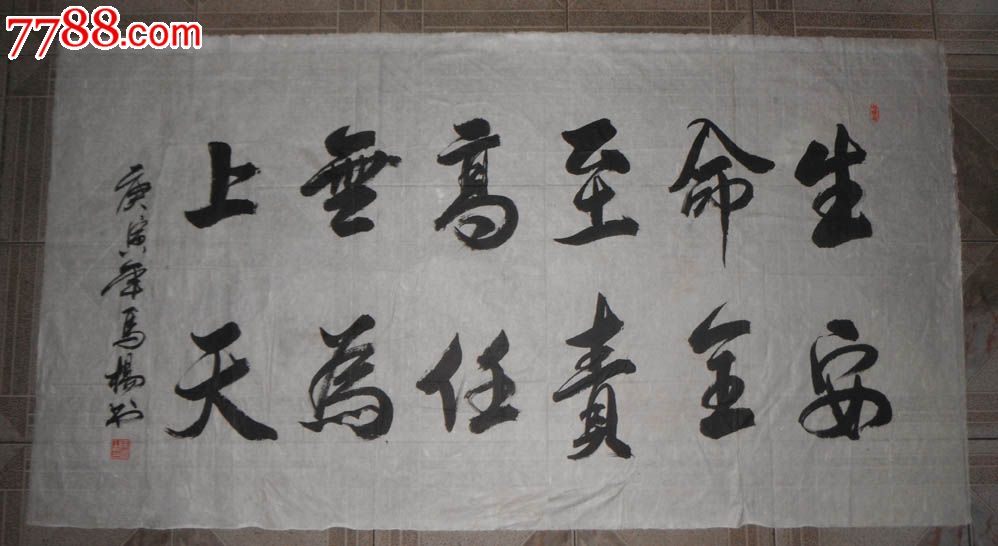 7788.com
生命至高無上
安全責任為天
庚寅年馬楊书